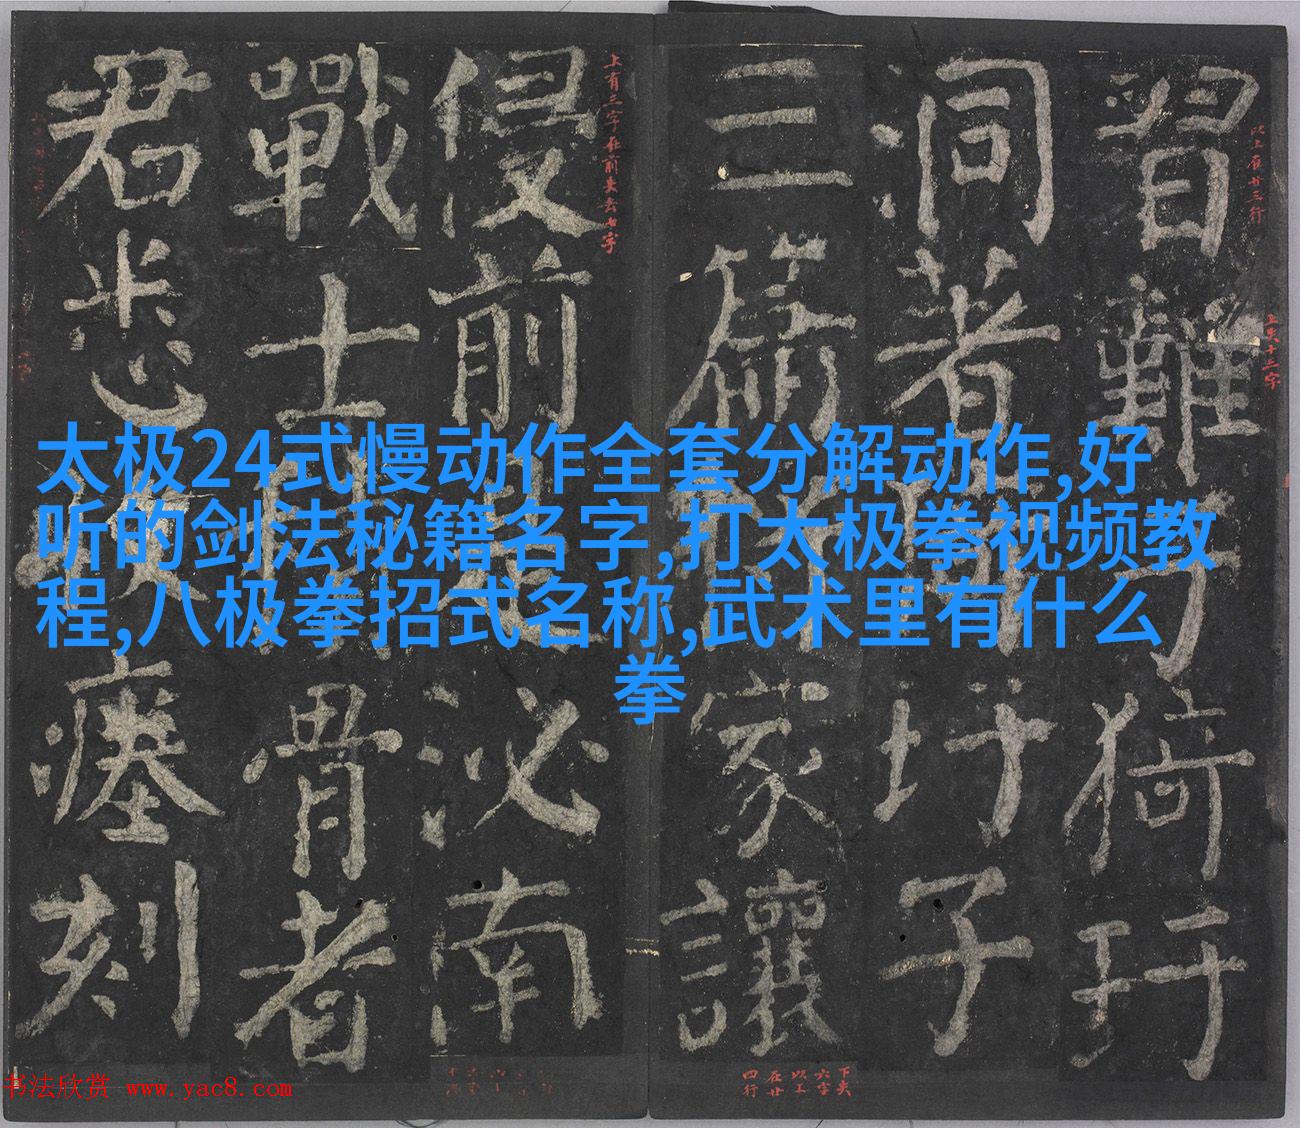 習難于猗玗
以上在廿三行
上失十三字
洞著玗子
三篇家讓
下失
六字
以上
在廿
四行
上有三字在前失去七字
侵前是泌南
戰士骨者
君悉收瘞刻
太极24式慢动作全套分解动作,好
听的剑法秘籍名字,打太极拳视频教
程,八极拳招式名称,武术里有什么
拳
书法欣赏 www.yac8.com